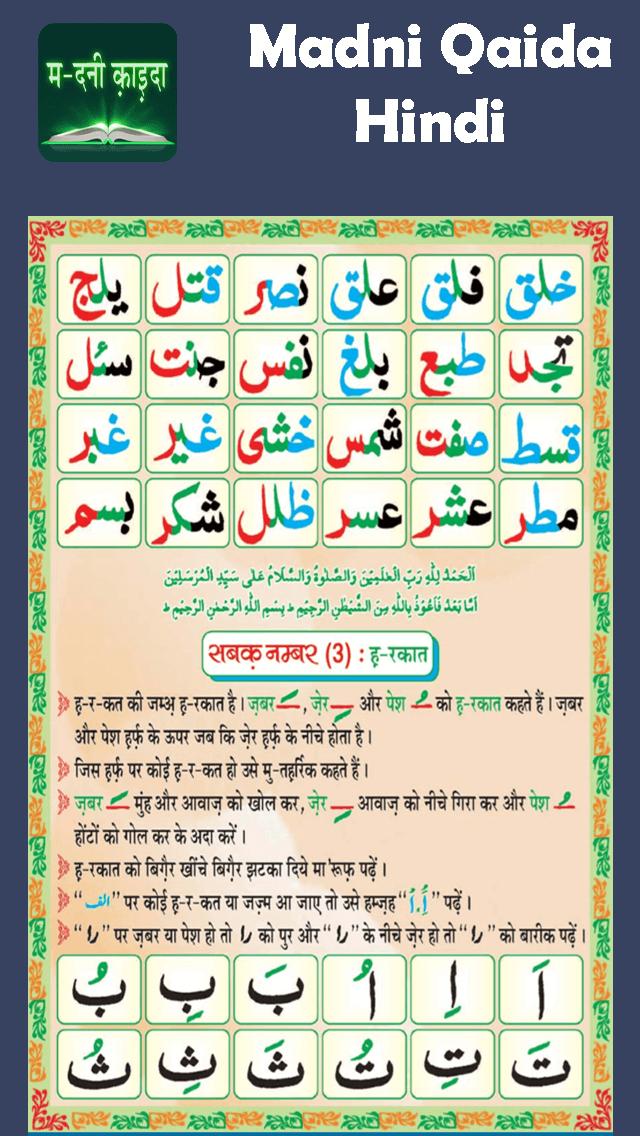 म-दनी क़ाइदा
Madni Qaida
Hindi
خلق فلق علق نصر قتل یلج
تجد طبع بلغ نفس جنت سئل
قسط صفت شمس خشی غیر غبر
مطر عشر عسر ظلل شکر بسم
اَلْحَمْدُ لِلّٰهِ رَبِّ الْعٰلَمِیْنَ وَالصَّلٰوةُ وَالسَّلَامُ عَلٰی سَیِّدِ الْمُرْسَلِیْنَ
اَمَّا بَعْدُ فَاَعُوْذُ بِاللّٰهِ مِنَ الشَّیْطٰنِ الرَّجِیْمِ ط بِسْمِ اللّٰهِ الرَّحْمٰنِ الرَّحِیْمِ ط
सबक़ नम्बर (3) : ह-रकात
ह-र-कत की जम्अ़ ह-रकात है। ज़बर ـَ , ज़ेर ـِ और पेश ـُ को ह-रकात कहते हैं। ज़बर
और पेश ह़र्फ़ के ऊपर जब कि ज़ेर ह़र्फ़ के नीचे होता है।
जिस ह़र्फ़ पर कोई ह-र-कत हो उसे मु-तह़र्रिक कहते हैं।
ज़बर ـَ मुंह और आवाज़ को खोल कर, ज़ेर ـِ आवाज़ को नीचे गिरा कर और पेश ـُ
होंटों को गोल कर के अदा करें।
ह-रकात को बिग़ैर खींचे बिग़ैर झटका दिये मा'रूफ़ पढ़ें।
“الف” पर कोई ह-र-कत या जज़्म आ जाए तो उसे हम्ज़ह “أُ.أَ” पढ़ें।
“را” पर ज़बर या पेश हो तो را को पुर और “را” के नीचे ज़ेर हो तो “را” को बारीक पढ़ें।
اَ اِ اُ بَ بِ بُ
تَ تِ تُ ثَ ثِ ثُ